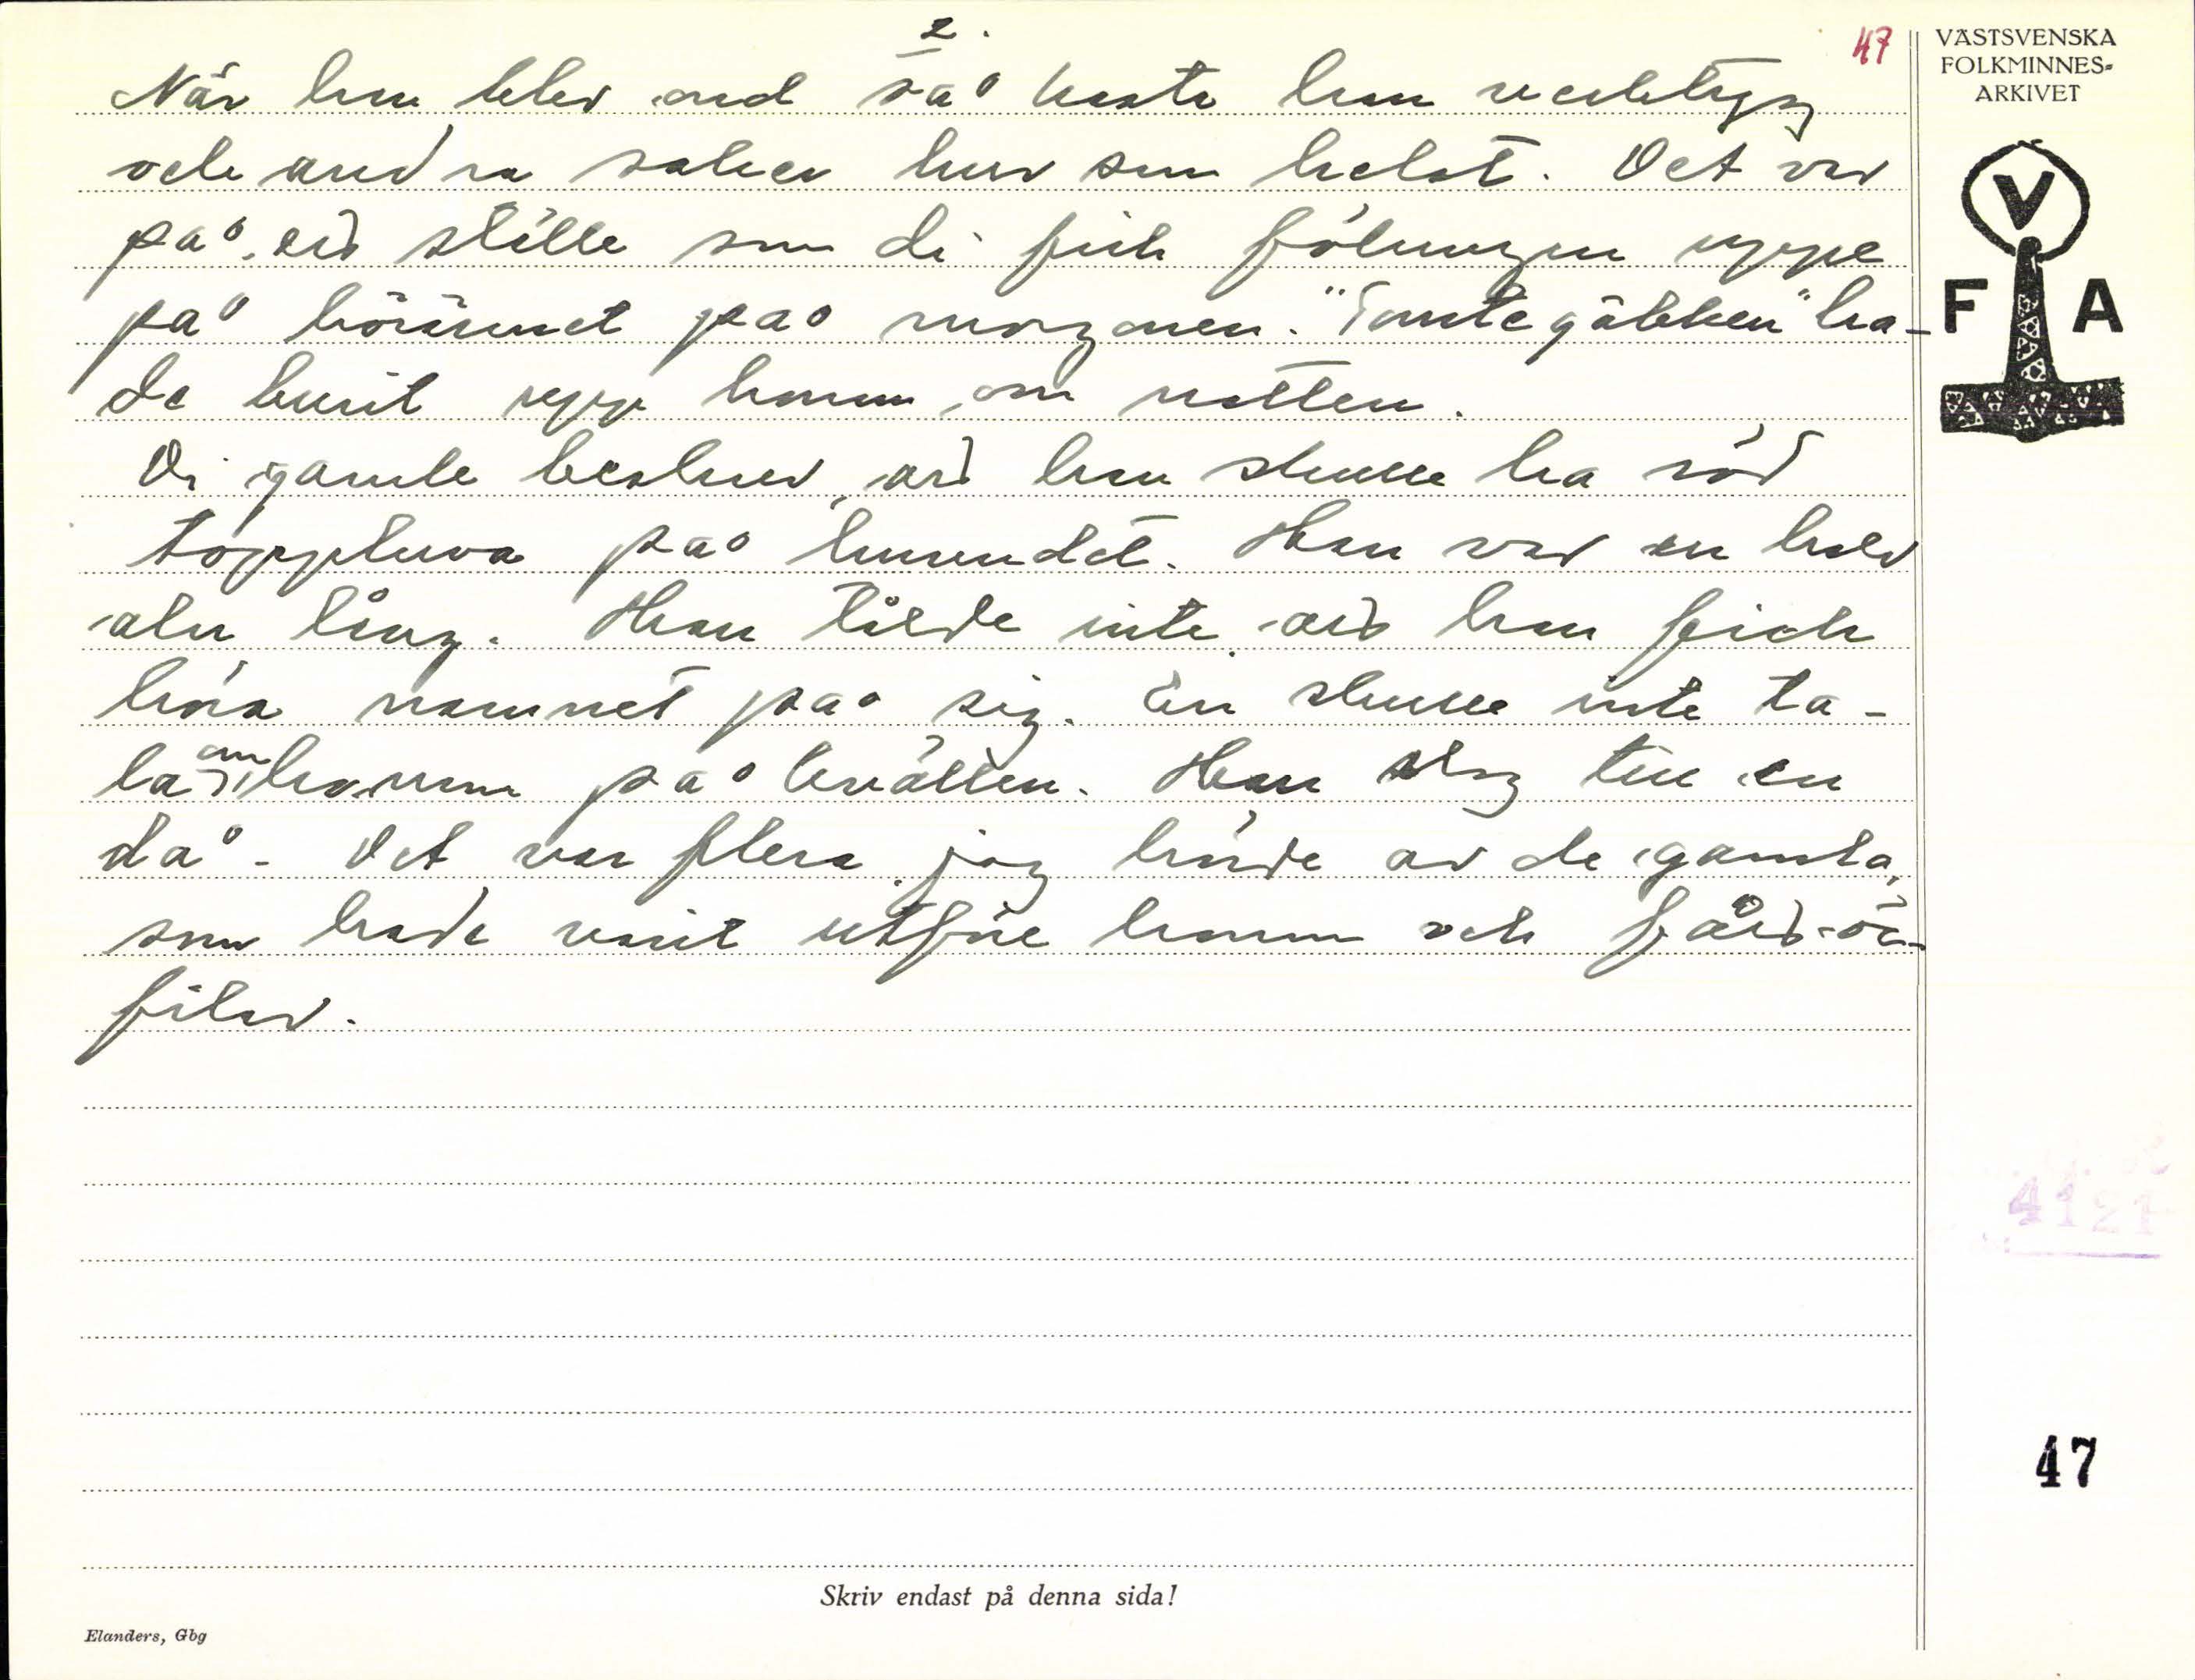 2.
47
När han blev ond så kasta han verktyg
och andra saker hur som helst. Det var
på ett ställe som di fick fölungen uppe
på hörännet på morgonen. "Tomtegubben" ha-
de burit upp honom om natten.
Di gamle beskrev, att han skulle ha röd
toppluva på huvudet. Han var en halv
aln lång. Han tålde inte att han fick
höra namnet på sig. En skulle inte ta-
la om honom på kvällen. Han slog till en
då. Det var flera jag hörde av de gamla,
som hade varit utför honom och fått ör-
filar.
VÄSTSVENSKA
FOLKMINNES-
ARKIVET
V
F A
4121
47
Skriv endast på denna sida!
Elanders, Gbg